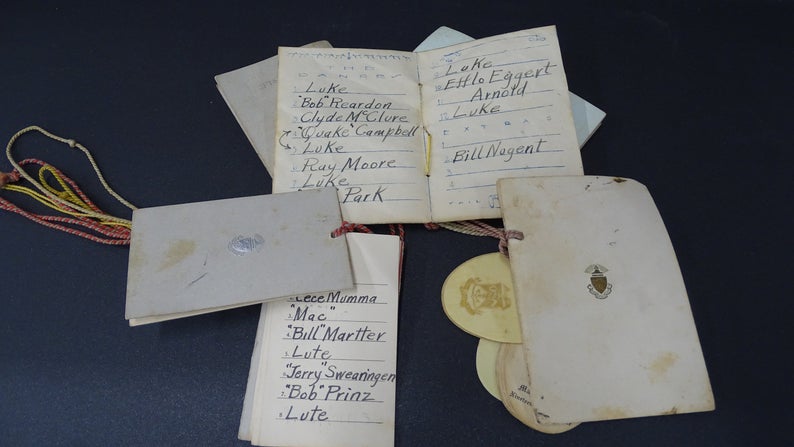 THE
DANCES
1 Luke
2 "Bob" Reardon
3 Clyde McClure
4 "Quake" Campbell
5 Luke
6 Ray Moore
7 Luke
Park
9 Luke
10 Efflo Eggert
11 Arnold
12 Luke
EXTRAS
1
2 Bill Nogent
3
4
Cece Mumma
3 "Mac"
4 "Bill" Martter
5 Lute
6 "Jerry" Swearingen
7 "Bob" Prinz
8 Lute